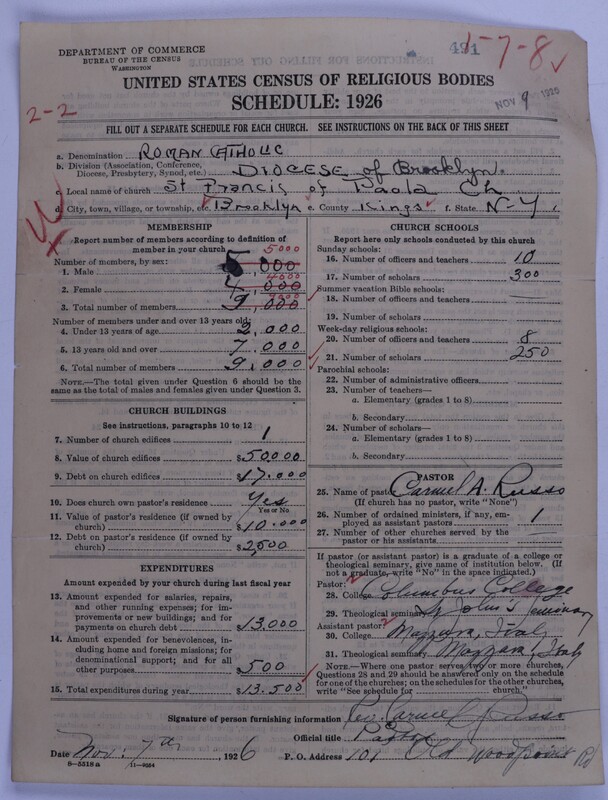 DEPARTMENT OF COMMERCE
BUREAU OF THE CENSUS
WASHINGTON
491
1-7-8
2-2
NOV 9 1926
UNITED STATES CENSUS OF RELIGIOUS BODIES
SCHEDULE: 1926
FILL OUT A SEPARATE SCHEDULE FOR EACH CHURCH. SEE INSTRUCTIONS ON THE BACK OF THIS SHEET
a. Denomination ROMAN CATHOLIC
b. Division (Association, Conference, Diocese, Presbytery, Synod, etc.) DIOCESE of Brooklyn.
c. Local name of church St Francis of Paola Ch
d. City, town, village, or township, etc. Brooklyn e. County Kings f. State N-Y
MEMBERSHIP
Report number of members according to definition of member in your church
Number of members, by sex:
5000
1. Male 5,000
4000
2. Female 4,000
9000
3. Total number of members 9,000
Number of members under and over 13 years old:
4. Under 13 years of age 2,000
5. 13 years old and over 7,000
6. Total number of members 9,000
NOTE.—The total given under Question 6 should be the same as the total of males and females given under Question 3.
CHURCH BUILDINGS
See instructions, paragraphs 10 to 12
7. Number of church edifices 1
8. Value of church edifices $50000
9. Debt on church edifices $17.000
10. Does church own pastor's residence Yes
Yes or No
11. Value of pastor's residence (if owned by church) $10.000
12. Debt on pastor's residence (if owned by church) $2500
EXPENDITURES
Amount expended by your church during last fiscal year
13. Amount expended for salaries, repairs, and other running expenses; for improvements or new buildings; and for payments on church debt $13,000
14. Amount expended for benevolences, including home and foreign missions; for denominational support; and for all other purposes 500
15. Total expenditures during year $13.500
CHURCH SCHOOLS
Report here only schools conducted by this church
Sunday schools:
16. Number of officers and teachers 10
17. Number of scholars 300
Summer vacation Bible schools:
18. Number of officers and teachers
19. Number of scholars
Week-day religious schools:
20. Number of officers and teachers 8
21. Number of scholars 250
Parochial schools:
22. Number of administrative officers
23. Number of teachers—
a. Elementary (grades 1 to 8)
b. Secondary
24. Number of scholars—
a. Elementary (grades 1 to 8)
b. Secondary
PASTOR
25. Name of pastor Carmel A. Russo
(If church has no pastor, write "None")
26. Number of ordained ministers, if any, employed as assistant pastors 1
27. Number of other churches served by the pastor or his assistants
If pastor (or assistant pastor) is a graduate of a college or theological seminary, give name of institution below. (If not a graduate, write "No" in the space indicated.)
Pastor:
28. College Columbus College
29. Theological seminary St John's Seminary
Assistant pastor:
30. College Mazzara, Italy
31. Theological seminary Mazzara, Italy
NOTE.—Where one pastor serves two or more churches, Questions 28 and 29 should be answered only on the schedule for one of the churches; on the schedules for the other churches, write "See schedule for church."
Signature of person furnishing information Rev. Carmel A. Russo
Official title Pastor
Date Nov. 7th, 1926 P. O. Address 101 Old Woodpoint Rd
8-5318 a 11-9284